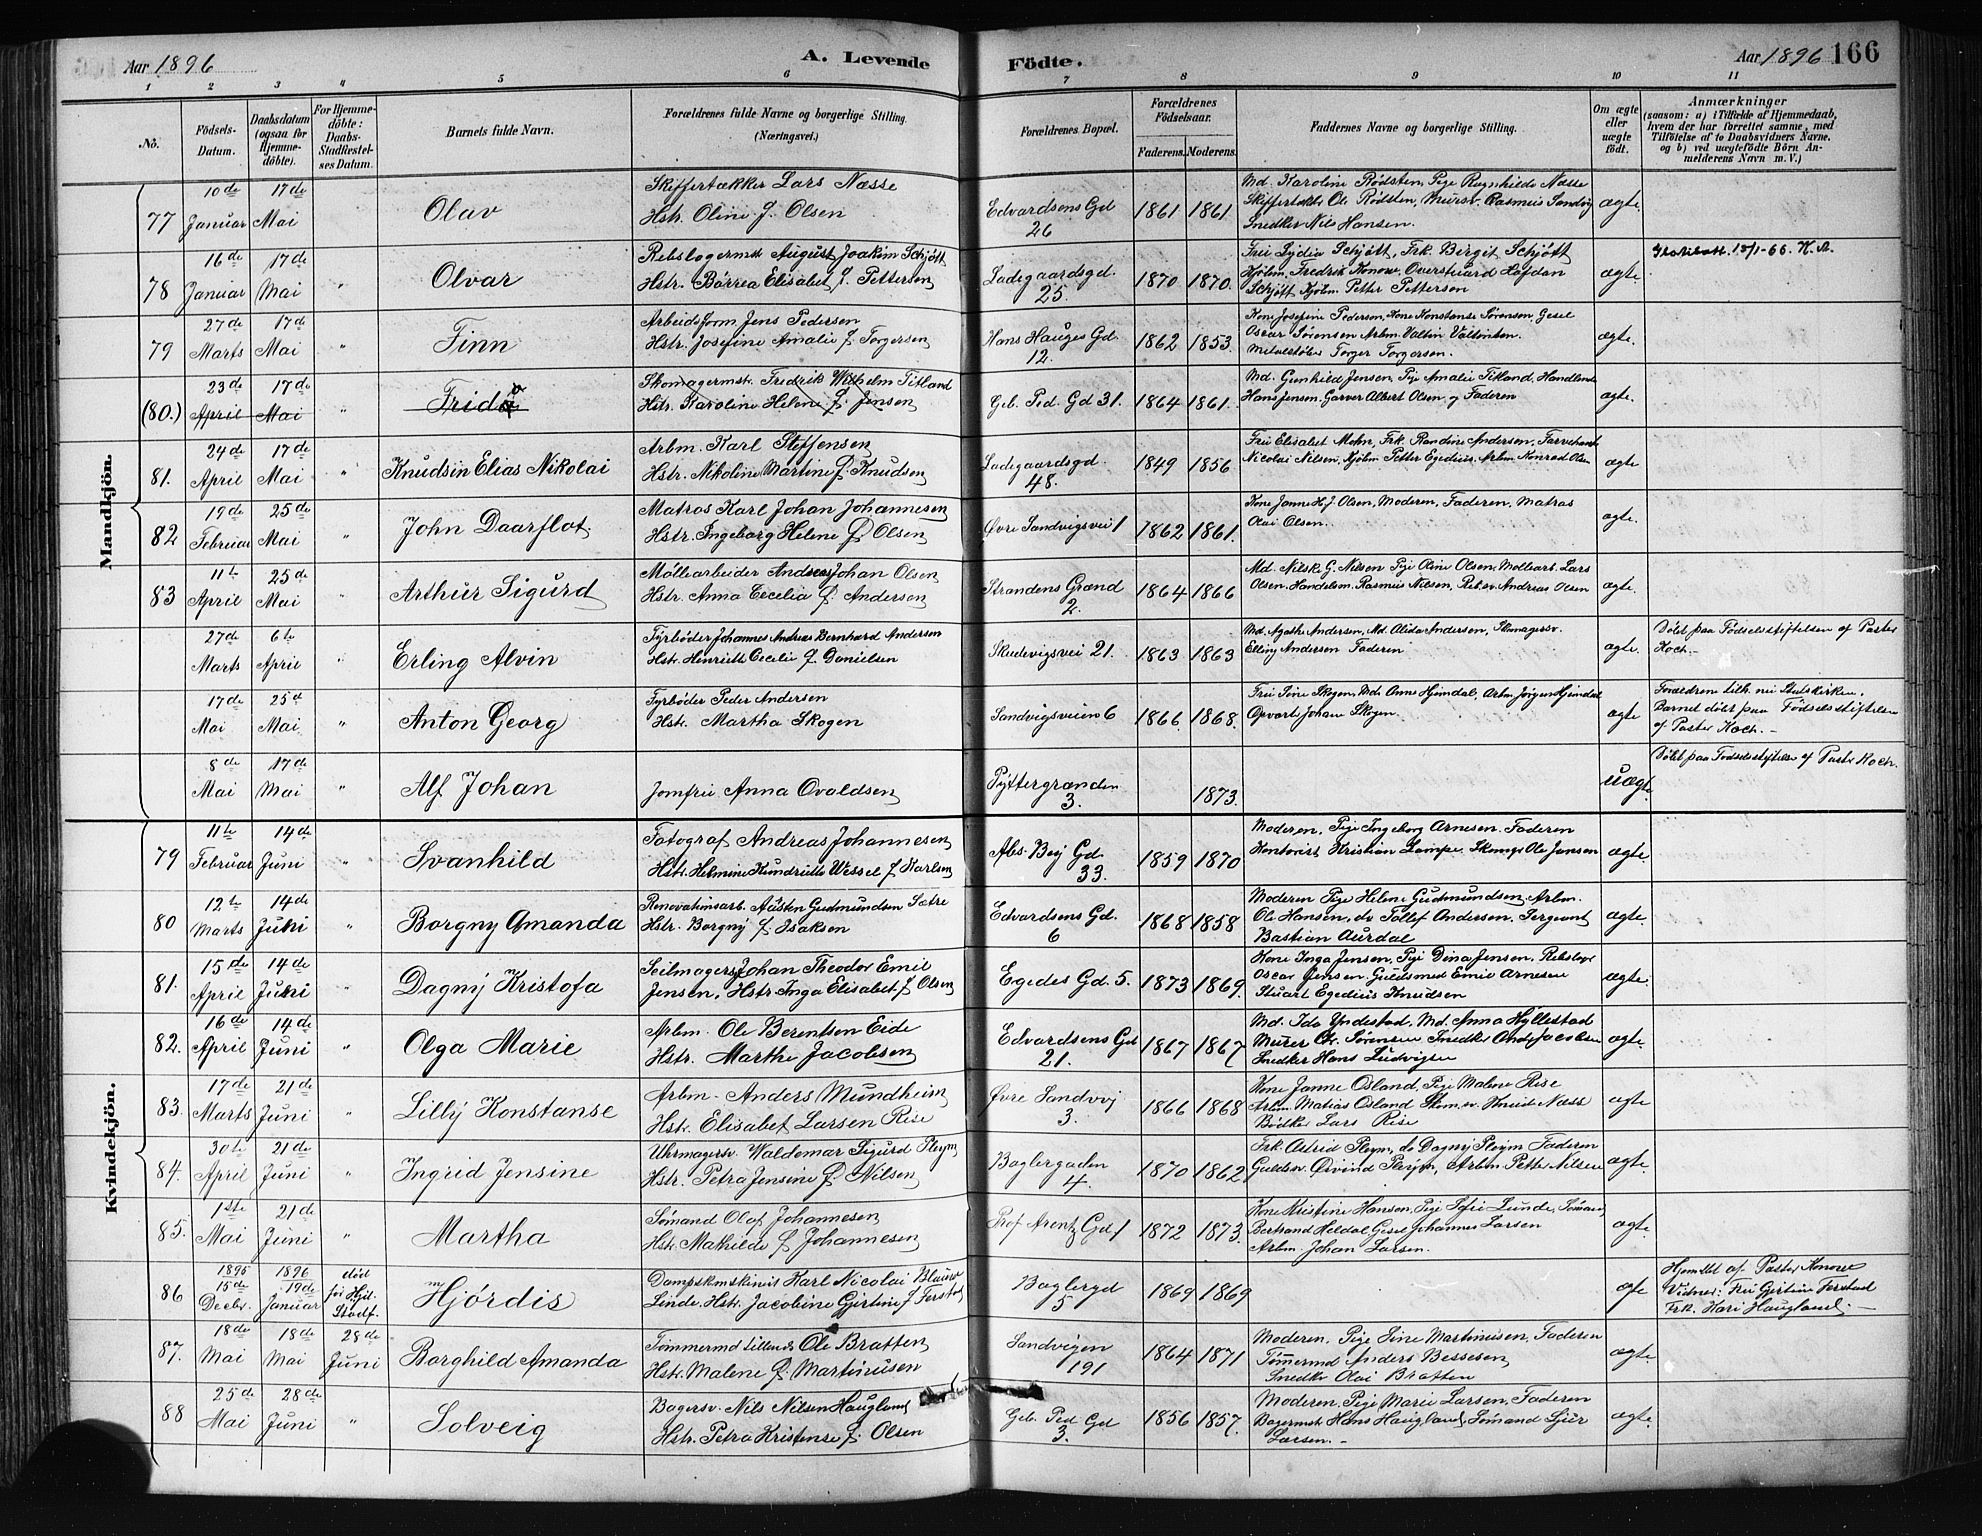 Aar 1896
A. Levende Födte.
Aar 1896 166
1 2 3 4 5 6 7 8 9 10 11
No.
Födsels-Datum.
Daabsdatum (ogsaa for Hjemme-döbte).
For Hjemme-döbte: Daabs-Stadfæstel-ses Datum.
Barnets fulde Navn.
Forældrenes fulde Navne og borgerlige Stilling. (Næringsvei.)
Forældrenes Bopæl.
Forældrenes Födselsaar.
Faderens. Moderens.
Faddernes Navne og borgerlige Stilling.
Om ægte eller uægte födt.
Anmærkninger
(saasom: a) i Tilfælde af Hjemmedaab, hvem der har forrettet samme, med Tilföielse af to Daabsvidners Navne. og b) ved uægtefödte Börn An-melderens Navn m. V.)
Mandkjön.
77 10de Januar 17de Mai Olav
Skiffertækker Lars Næsse
Hstr. Oline f. Olsen
Edvardsens Gd 26 1861 1861
Md. Karoline Rødsten, Pige Ragnhilde Næsse
Skiffertækk. Ole Rødsten, Mursv. Rasmus Sandvig
Snedker Nils Hansen. ægte.
78 16de Januar 17de Mai " Olvar
Rebslagermst August Joakim Schjøtt
Hstr. Børrea Elisabet f. Pettersen
Ladegaardsgd. 25. 1870 1870
Fru Lydia Schjøtt, Frk. Bergit Schjøtt
Kjøbm. Fredrik Konow, Overstuard Hafdan
Schjøtt Kjøbm. Petter Pettersen ægte.
79 27de Marts 17de Mai " Finn
Arbeidsform. Jens Pedersen
Hstr. Josefine Amalie f. Torgersen
Hans Hauges Gd. 12. 1862 1853
Kone Josefine Pedersen, Kone Konstanse Sørensen Gesel
Oscar Sørensen Arbm. Valtin Valtinsen.
Torger Torgersen. ægte.
(80.) 23de April 17de Mai " Frida
Skomagermst. Fredrik Wilhelm Titland
Hstr. Karoline Helene f. Jensen
Geb. Ped. Gd 31. 1864 1861
Md. Gunhild Jensen, Pige Amalie Titland, Handlende
Hans Jensen, Garver Albert Olsen og Faderen ægte.
81. 24de April 17de Mai " Knudsin Elias Nikolai
Arbm. Karl Steffensen
Hstr. Nikoline Martine f. Knudsen
Ladegaardsgd. 48. 1849 1856
Fru Elisabet Mohn, Frk. Randine Andersen, Farvehand.
Nicolai Nilsen, Kjøbm. Petter Egedius, Arbm. Konrad Olsen ægte
82 19de Februar 25de Mai " John Daarflot.
Matros Karl Johan Johannesen
Hstr. Ingeborg Helene f. Olsen
Øvre Sandvigsvei 1 1862 1861
Kone Janne H. J. Olsen, Moderen, Faderen, Matros
Olai Olsen. ægte.
83 11te April 25de Mai Arthur Sigurd
Møllearbeider Andreas Johan Olsen
Hstr. Anna Cecelia f. Andersen
Strandens Grænd 2. 1864 1866
Md. Nilske G. Nilsen Pige Oline Olsen, Møllearb. Lars
Olsen, Handelsm. Rasmus Nilsen, Reb.sv. Andreas Olsen ægte.
27de Marts 6te April " Erling Alvin
Fyrbøder Johannes Andreas Bernhard Andersen
Hstr. Henriette Cecelie f. Danielsen
Skudevigsvei 21. 1863 1863
Md. Agathe Andersen, Md. Alida Andersen, Skomagersv.
Elling Andersen Faderen ægte.
Døbt paa Fødselsstiftelsen af Pastor Koch.
17de Mai 25d Mai " Anton Georg
Fyrbøder Peder Andersen
Hstr. Martha Skogen
Sandvigsveien 6 1866. 1868.
Fru Sine Skogen, Md. Anna Hjemdal, Arbm. Jørgen Hjemdal
Opvart. Johan Skogen ægte
Forældrene tilh. nu Statskirken.
Barnet døbt paa Fødselsstiftelsen
af Pastor Koch.
8de Mai 17de Mai " Alf Johan
Jomfru Anna Ovaldsen
Pÿttergrænden 3. 1873. uægte.
Døbt paa Fødselsstiftelse af Pastor Koch.
Kvindekjön.
79 11te Februar 14de Juni " Svanhild
Fotograf Andreas Johannesen
Hstr. Helmine Hendriette Wessel f. Karlsen
Abs. Beÿ Gd. 33. 1859 1870
Moderen, Pige Ingeborg Arnesen, Faderen
Kontorist Kristian Lampe, Skomgr Ole Jansen ægte
80 12te Marts 14de Juni " Borgny Amanda
Renovationsarb. Austen Gudmundsen Sætre
Hstr. Borgny f. Isaksen
Edvardsens Gd. 6 1868 1858
Moderen Pige Helene Gudmundsen, Arbm.
Ole Hansen, do Tollef Andersen, Sergeant
Bastian Aurdal ægte.
81. 15de April 14de Juni " Dagny Kristofa
Seilmagersv. Johan Theodor Emil
Jensen, Hstr. Inga Elisabet f. Olsen
Egedes Gd. 5. 1873 1869.
Kone Inga Jensen, Pige Dina Jensen, Rebslagr
Oscar Jensen, Guldsmed Emil Arnesen
Stuart Egedius Knudsen ægte.
82. 16de April 14de Juni " Olga Marie
Arbm. Ole Berentsen Eide
Hstr. Marthe Jacobsen
Edvardsens Gd 21. 1867 1867
Md. Ida Yndestad, Md. Anna Hyllestad
Murer Chr. Sørensen Snedkr Jacobsen
Snedker Hans Ludvigsen ægte.
83. 17de Marts 21de Juni " Lillÿ Konstanse
Arbm. Anders Mundheim
Hstr. Elisabet Larsen Rise
Øvre Sandvvj 3. 1866 1868
Kone Janne Osland, Pige Malene Rise
Arbm. Matias Osland Skom.sv. Knud Næss
Bødker Lars Rise ægte
84. 30te April 21de Juni " Ingrid Jensine
Uhrmagersv. Waldemar Sigurd Pleym
Hstr. Petra Jensine f. Nilsen
Baglergaden 4. 1870 1862
Frk. Astrid Pleym, do Dagny Pleÿm Faderen
Guldsv. Øivind Pleÿm, Arbm. Petter Nilsen ægte.
85. 1ste Mai 21de Juni " Martha
Sømand Olaf Johannesen
Hstr. Mathilde f. Johannesen
Prof Arentz Gd 1 1872 1873.
Kone Kristine Hansen, Pige Sofie Lunde, Sømand
Bertrand Heldal, Gesel Johannes Larsen
Arbm. Johan Larsen. ægte.
86 1895 15de Decbr. 1896 19de Januar død før Hjd. Stadf. Hjørdis
Dampskmskinist Karl Nicolai Blauw
Linde. Hstr. Jacobine Gjertine f. Ferstad
Baglergd 5 1869 1869 ægte
Hjemdbt af Pastor Konow
Vidner: Fru Gjertine Ferstad
Frk. Kari Haugland.
87. 18de Mai 18de Mai 28de Juni Borghild Amanda
Tømmermd Ole Bratten
Hstr. Malene f. Martinusen
Sandvigen 191 1864 1871
Moderen. Pige Sine Martinusen, Faderen
Tømmermd Anders Bessesen
Snedkr Olai Bratten ægte.
88 25de Mai 28de Juni " Solveig
Bagersv. Nils Nilsen Haugland
Hstr. Petra Kristense f. Olsen
Geb. Ped Gd 3. 1856 1857.
Moderen. Pige Marie Larsen, Faderen
Bagermst Hans Haugland, Sømand Sjur
Larsen. ægte.